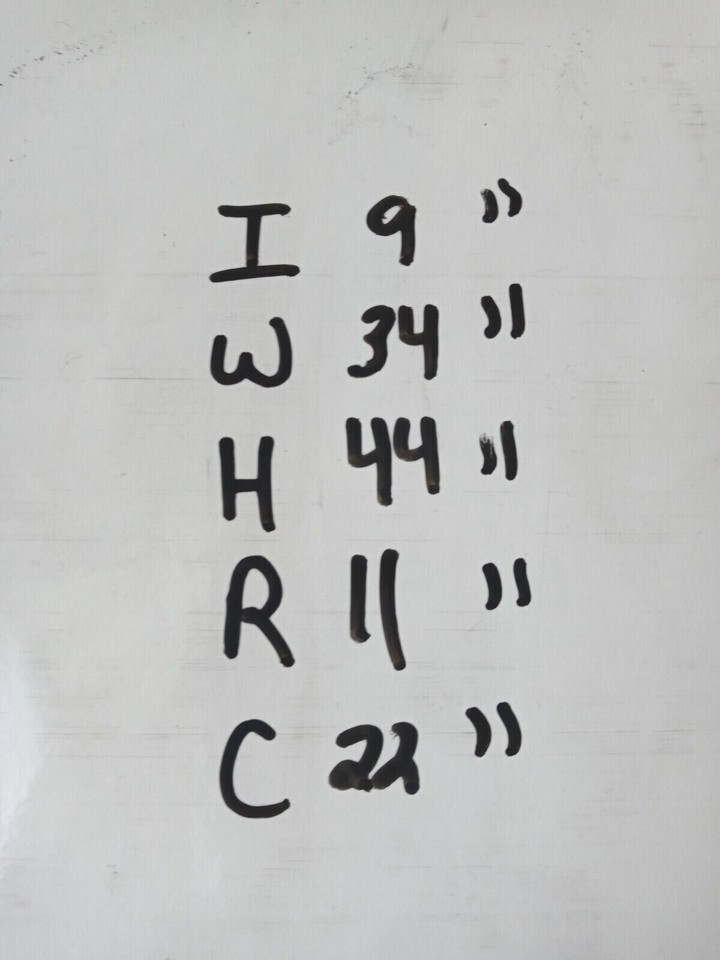 I 9 "
W 34 "
H 44 "
R 11 "
C 22 "